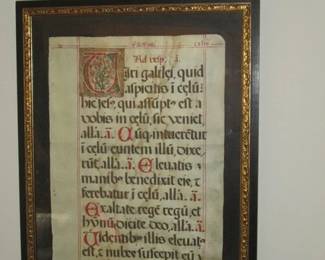 Ad vesp̃. ã.
Viri galilei, quid
aspicitis ĩ celũ:
hic Jesꝰ, qui assũptꝰ est a
vobis in celũ, sic veniet,
all'a. ã. Cũq; intueretur
ĩ celũ euntem illũ, dixe
rũt, all'a. ã. Eleuatis
manibꝰ benedixit eis, ⁊
ferebatur ĩ celũ, all'a. ã.
Exaltate regẽ regũ, et
hỹnũ dicite deo, all'a. ã.
Uidentibꝰ illis eleuatꝰ
est, ⁊ nubes suscepit eũ